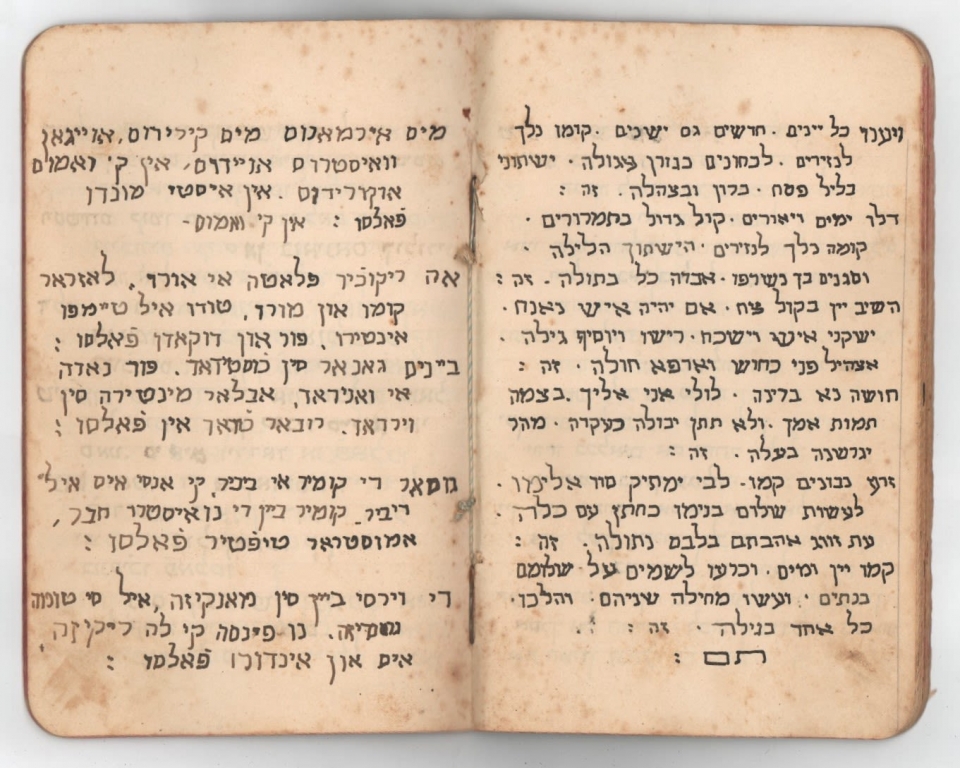 ויענו כל יינים . חדשים גם ישנים . קומו נלך
לנזירים . לבחונים בנזרן עגולה . ישתוני
בליל פסח . ברון ובצהלה . זה :
דלו ימים ויאורים . קול גדול בתמרורים .
קומה נלך לנזירים . הישתוך הלילה .
וסגנים בך נשרפו . אבדה כל בתולה . זה :
השיב יין בקול צח . אם יהיה איש נאנח .
ישקני איש וישכח . רישו ויוסיף גילה .
אצהיל פני כחוש וארפא חולה . זה :
חושה נא ברינה . לולי אני אליך . בצמה
תמות אמך . ולא תתן יבולה כעקרה . מהר
יגרשנה בעלה . זה :
זרע נבונים קמו . לבי ימתיק סוד אלימו .
לעשות שלום בנימו כחתן עם כלה .
עת זווג אהבתם בלבם נתולה . זה :
קמו יין ומים . וכרעו לשמים על שלומם
בנתים . ועשו מחילה שניהם . והלכו .
כל אחד בגילה . זה :
תם :
מים אירמאנוס מים קירידוס, אזייגאן
וואיסטרוס אויידוס, אין קי ואמוס
אוקורידוס . אין איסטי מונדו
פ֗אלסו : אין קי ואמוס-
אה ריקוג֗יר פלאטה אי אורו, לאזראר
קומו און מורו, טודו איל טיימפו
אינטירו, פור און דוקאדו פ֗אלסו :
ביינים גאנאר סין פור נאדה
אי ואניראד, אבלאר מינטירה סין
וירדאד. רובאר אין פ֗אלסו :
די קומיר אי ביביר, קי אנסי איס איל
ריביר. קומיר ביין די נואיסטרו חבר,
אמוסטראר טיפ֗טיר פ֗אלסו :
די וירסי ביין סין מאנקיזה, איל סי טומה
נו פינסה קי לה ריקיזה
איס און אינדורו פ֗אלסו :